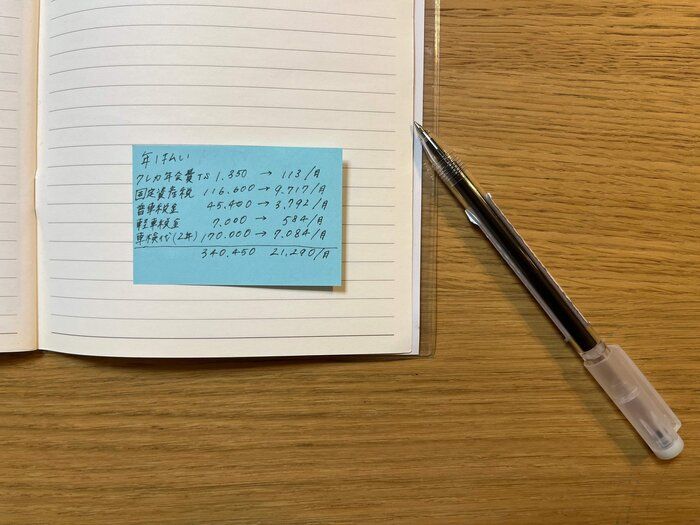 年1払い
クレカ年会費TS 1.350 → 113/月
固定資産税 116.600→9.717/月
普車税金 45.400→3.792/月
軽車税金 7.000 → 584/月
車検代(2年) 170.000→7.084/月
340.450 21.290/月